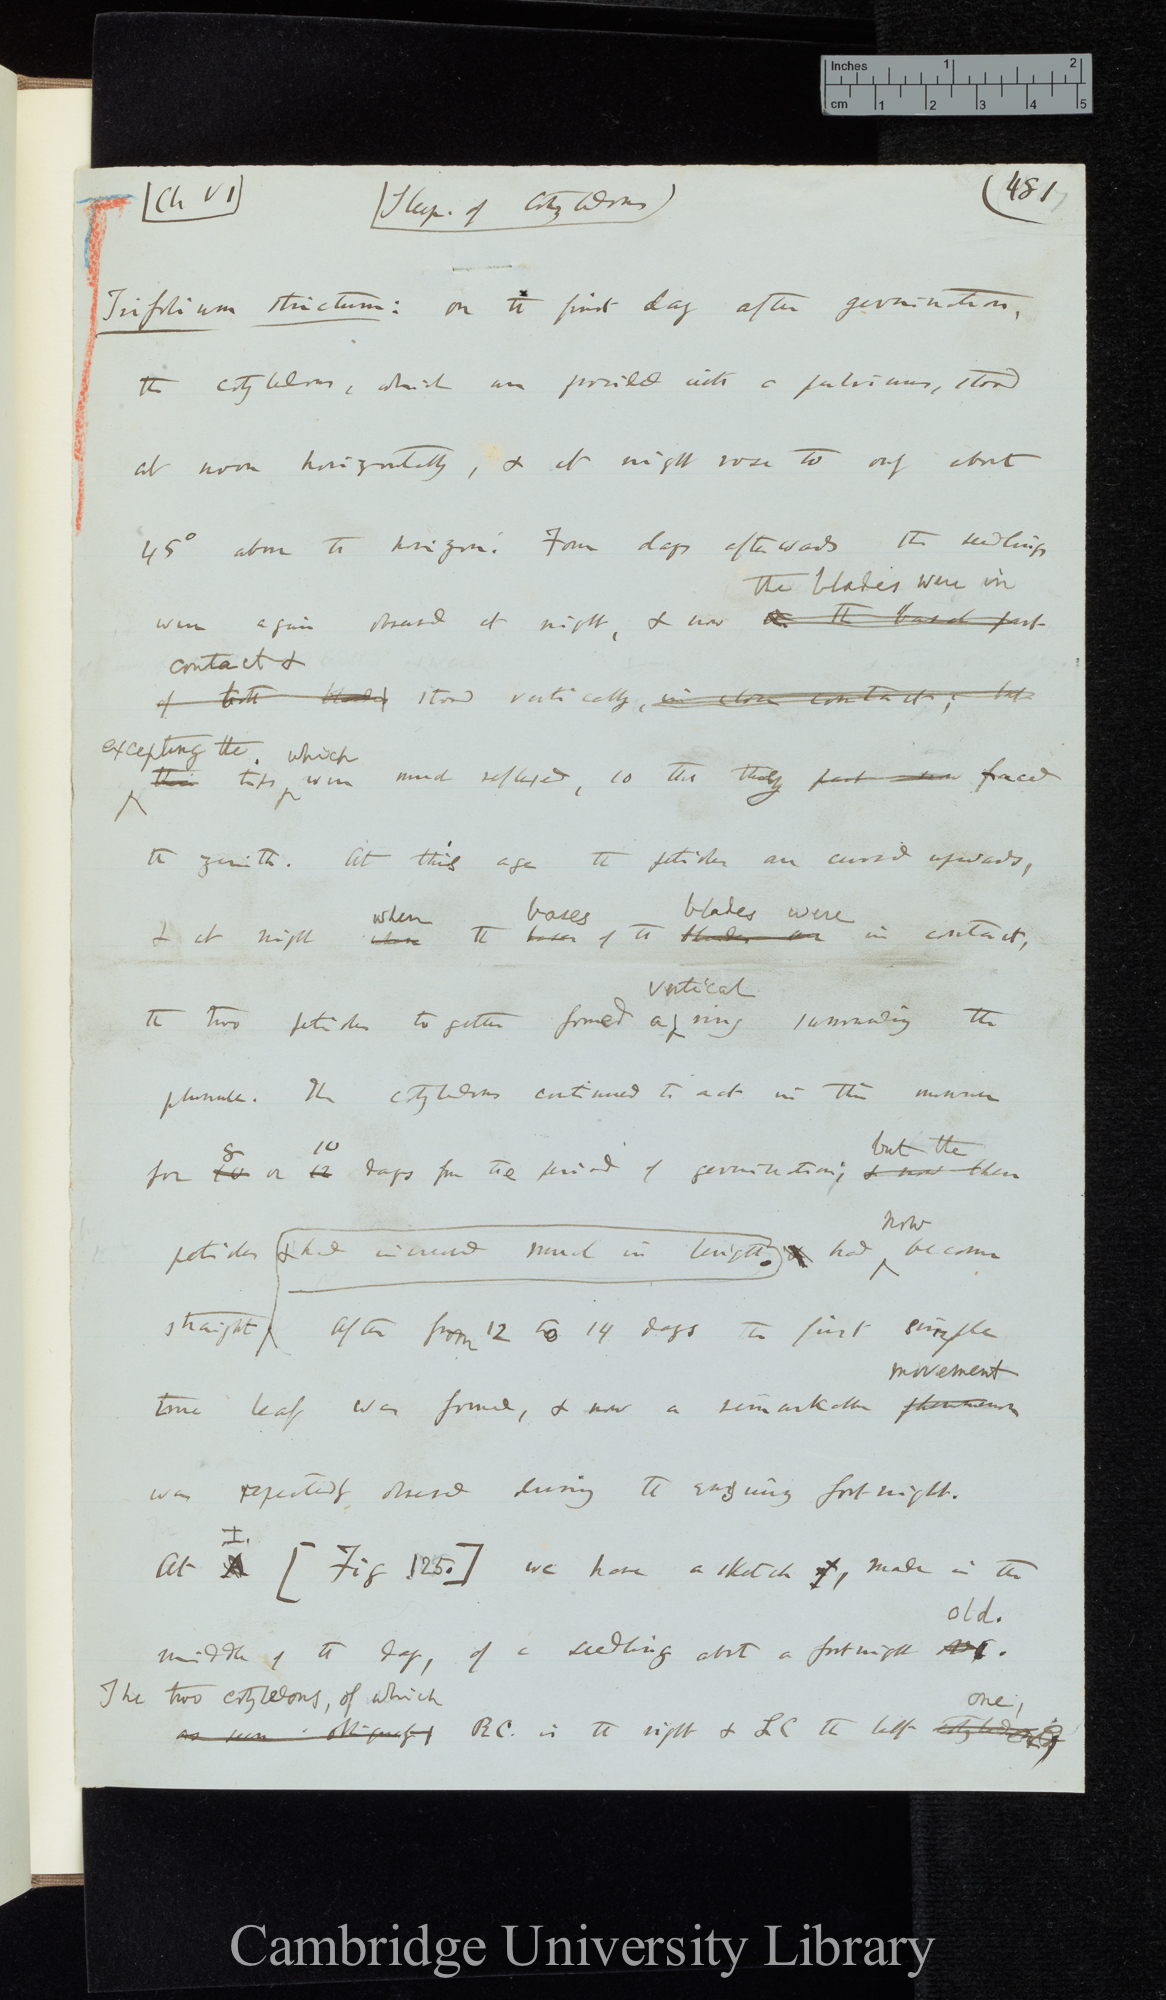 Inches 1 2
cm 1 2 3 4 5
Ch VI
Sleep. of Cotyledons
(481
Trifolium strictum: on the first day after germination,
the cotyledons, which are provided with a pulvinus, stood
at noon horizontally, & at night rose to only about
45° above the horizon. Four days afterwards the seedlings
the blades were in
were again observed at night, & now the basal part
contact &
of both blades stood vertically, in close contact; but
excepting the which
their tips were much reflexed, so that they part now faced
the zenith. At this age the petioles are curved upwards,
when bases blades were
& at night when the bases of the blades are in contact,
vertical
the two petioles together formed a ring surrounding the
plumule. The cotyledons continued to act in this manner
8 10 but the
for 10 or 12 days from the period of germination; & now then
now
petioles & had increased much in length. & had become
straight. After from 12 to 14 days the first simple
movement
true leaf was formed, & now a remarkable phenomenon
was repeatedly observed during the ensuing fortnight.
I.
At A [Fig 125.] we have a sketch, made in the
old.
middle of the day, of a seedling about a fortnight
The two cotyledons, of which one,
as seen obliquely RC. is the right & LC the left cotyledons
Cambridge University Library